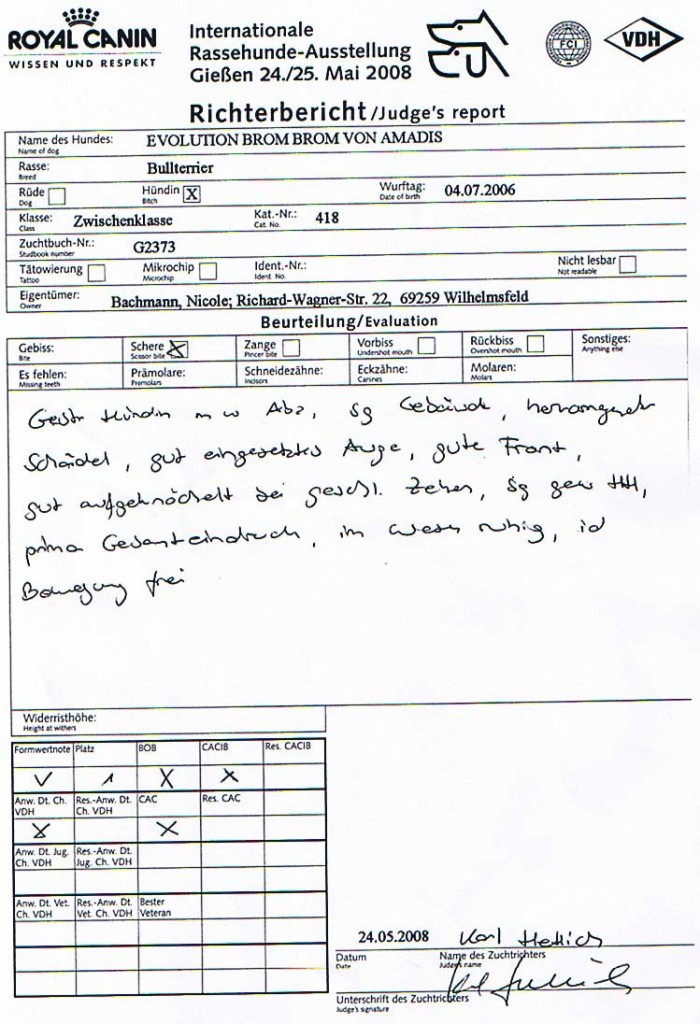 ROYAL CANIN
WISSEN UND RESPEKT
Internationale
Rassehunde-Ausstellung
Gießen 24./25. Mai 2008
FCI
VDH
Richterbericht/Judge's report
Name des Hundes: EVOLUTION BROM BROM VON AMADIS
Name of dog
Rasse: Bullterrier
Breed
Rüde Hündin X Wurftag: 04.07.2006
Dog Bitch Date of birth
Klasse: Zwischenklasse Kat.-Nr.: 418
Class Cat. No.
Zuchtbuch-Nr.: G2373
Studbook number
Tätowierung Mikrochip Ident.-Nr.: Nicht lesbar
Tattoo Microchip Ident No. Not readable
Eigentümer: Bachmann, Nicole; Richard-Wagner-Str. 22, 69259 Wilhelmsfeld
Owner
Beurteilung/Evaluation
Gebiss: Schere X Zange Vorbiss Rückbiss Sonstiges:
Bite Scissor bite Pincer bite Undershot mouth Overshot mouth Anything else
Es fehlen: Prämolare: Schneidezähne: Eckzähne: Molaren:
Missing teeth Premolars Incisors Canines Molars
Hündin m w Abz, sg Gebäude, hervorragender
Schädel, gut eingesetztes Auge, gute Front,
gut aufgeknöchelt bei geschl. Zehen, sg gew HH,
prima Gesamteindruck, im Wesen ruhig, id
Bewegung frei
Widerristhöhe:
Height at withers
Formwertnote Platz BOB CACIB Res. CACIB
V 1 X X
Anw. Dt. Ch. VDH Res.-Anw. Dt. Ch. VDH CAC Res. CAC
X X
Anw. Dt. Jug. Ch. VDH Res.-Anw. Dt. Jug. Ch. VDH
Anw. Dt. Vet. Ch. VDH Res.-Anw. Dt. Vet. Ch. VDH Bester Veteran
24.05.2008 Karl Hettich
Datum Name des Zuchtrichters
Date Judge's name
Unterschrift des Zuchtrichters
Judge's signature